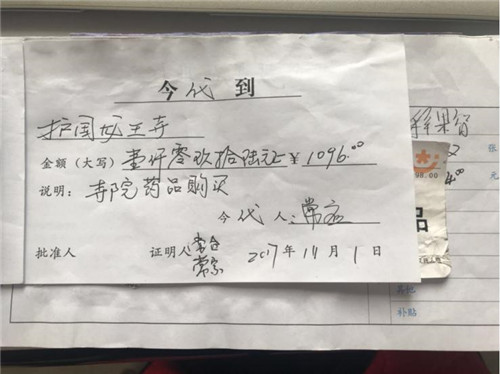 今代到
护国女王寺
金额（大写）壹仟零玖拾陆元 ¥ 1096.00
说明：寺院药品购买
今代人：常应
批准人 证明人 常
常宗
2017年11月1日
张
元
98.00
品
其他
补贴